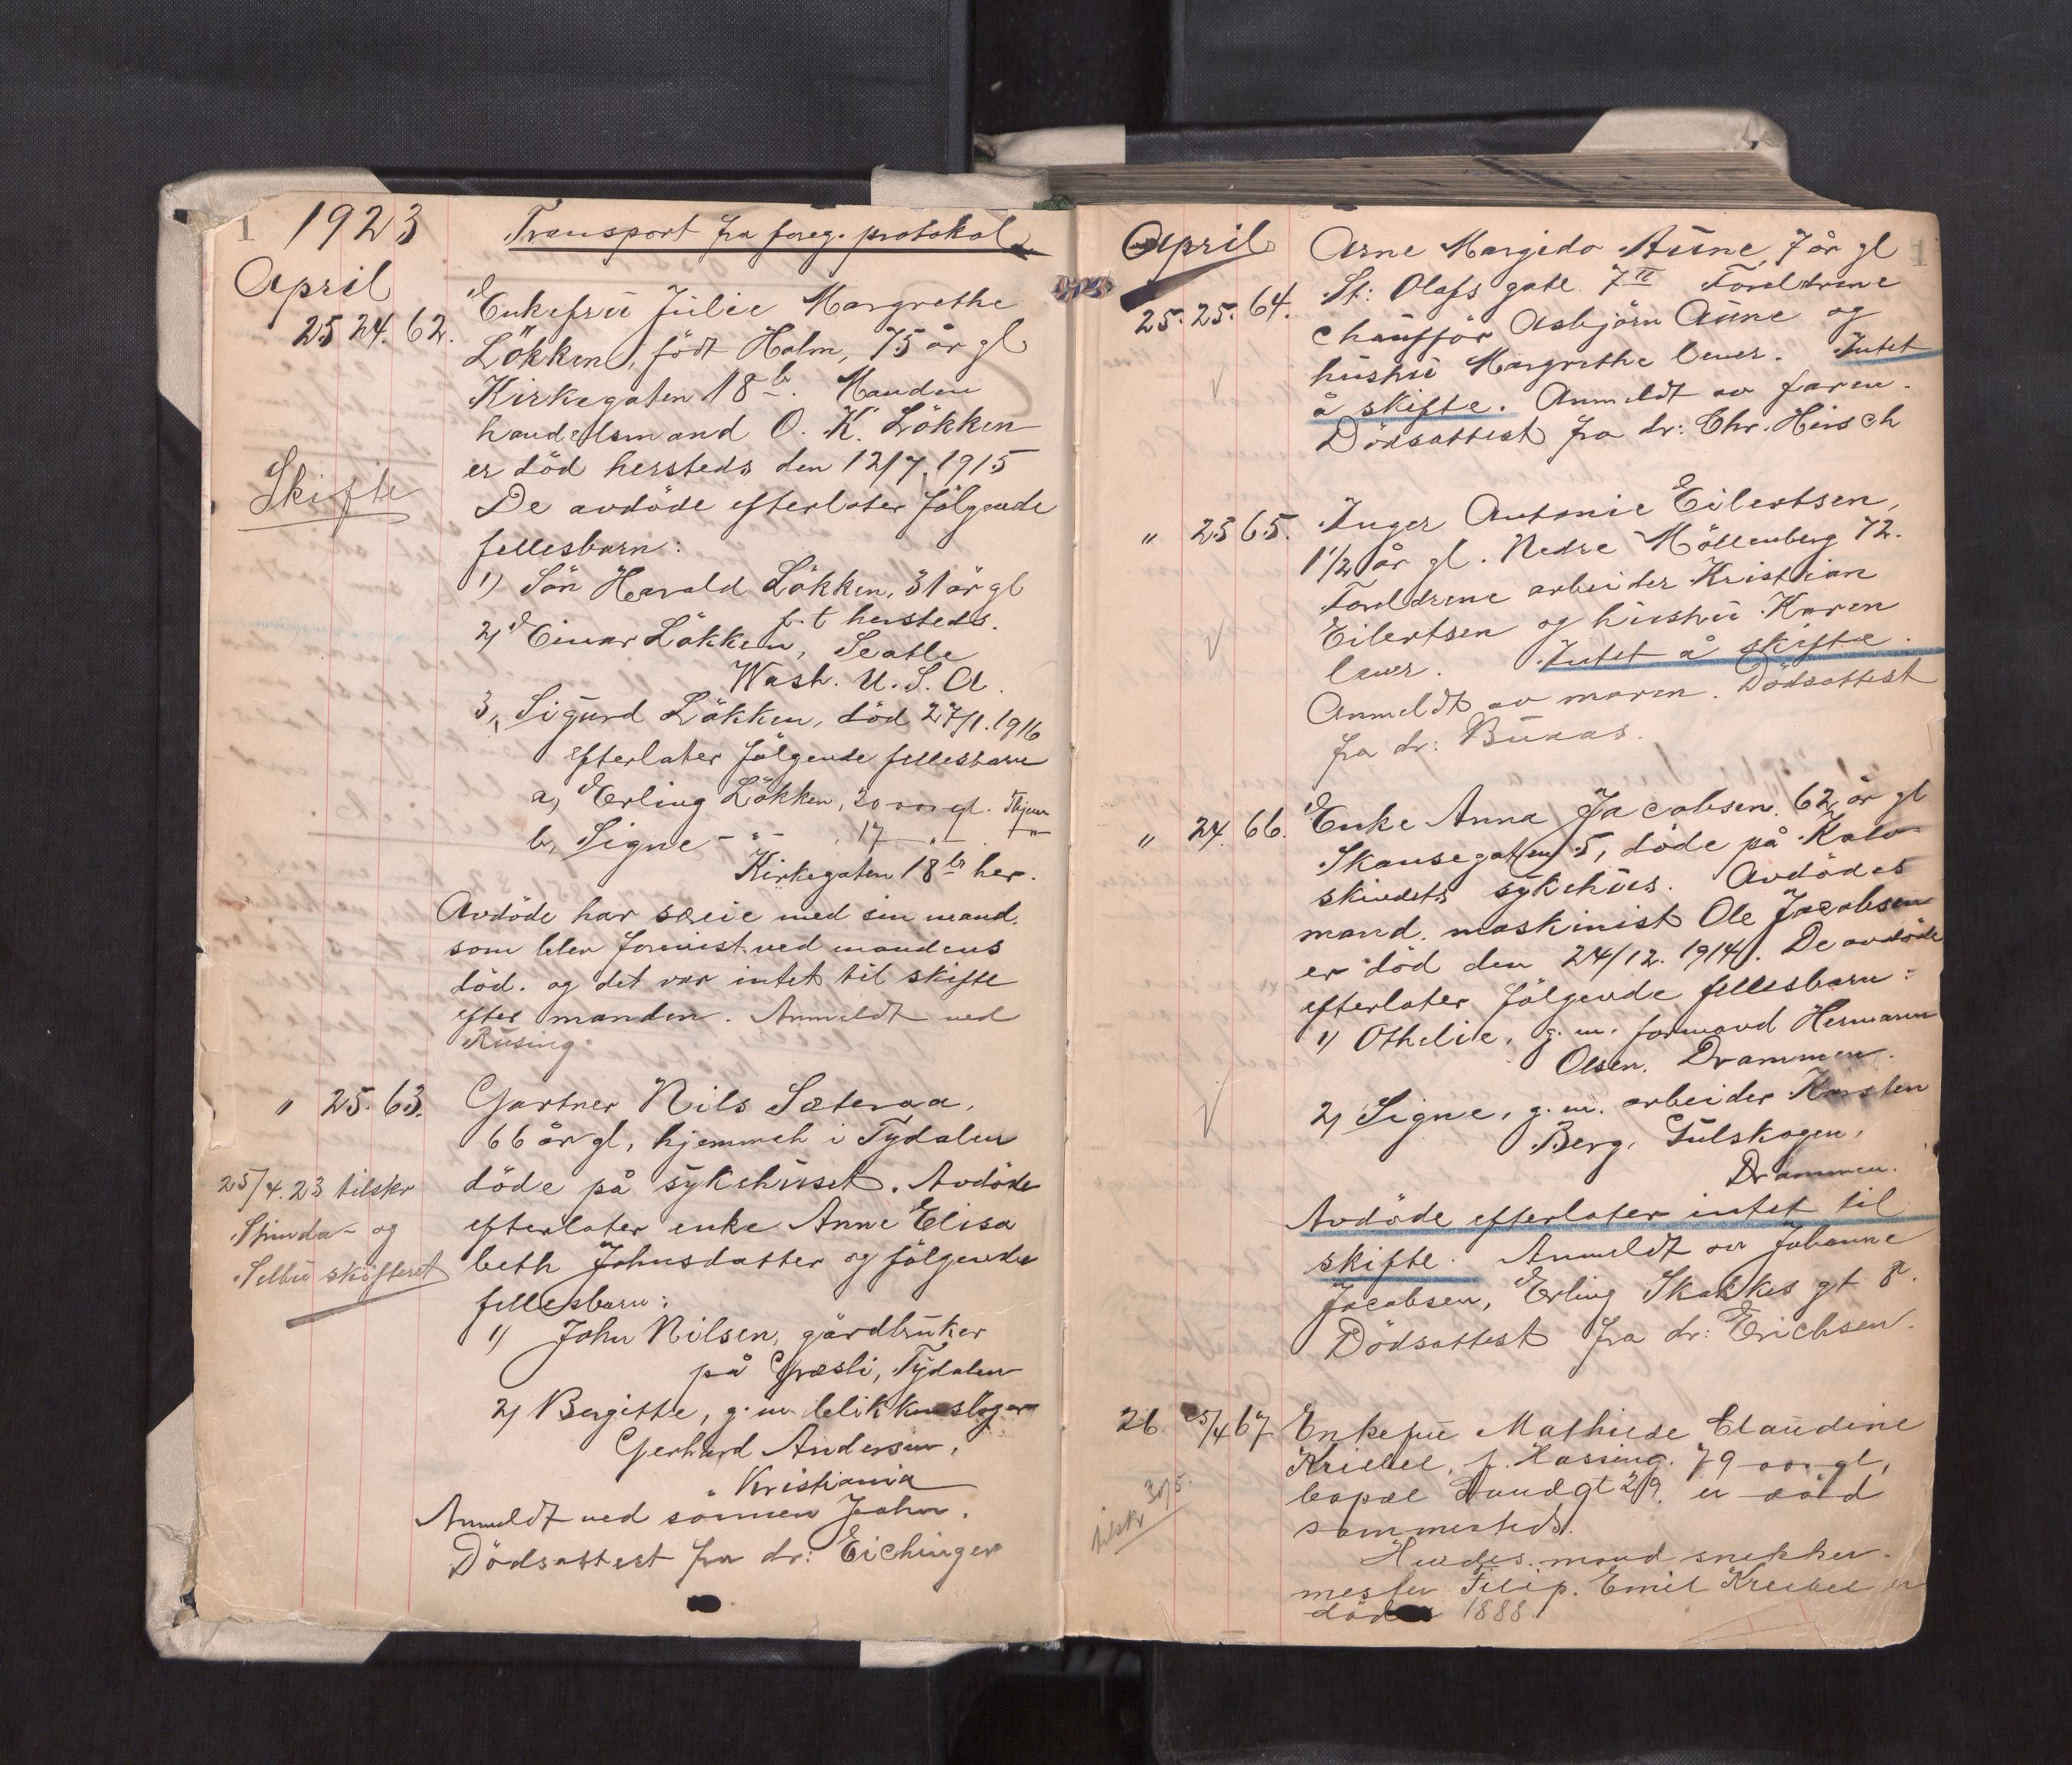 1
1923
Transport fra foreg. protokol
April
25 24. 62. Enkefru Julie Margrethe
Lökken, född Holm, 75 år gl
Kirkegaten 18 b. Manden
handelsmand O. K. Lökken
er död hersteds den 12/7 1915
Skifte
De avdöde efterlater fölgende
fellesbarn:
1) Sön Harald Lökken, 31 år gl
p.t hersteds.
2) Einar Lökken, Seatle
Wash. U. S. A.
3, Sigurd Lökken, död 27/1. 1916
efterlater fölgende fellesbarn
a, Erling Lökken, 20 aar gl.
b, Signe - " - , 17 - " -
Kirkegaten 18 b her.
Avdöde har sæeie med sin mand.
som blev forevist ved mandens
död. og det var intet til skifte
efter manden. Anmeldt ved
Rusing
" 25. 63. Gartner Nils Sæteraa,
66 år gl, hjemmeh i Tydalen
25/4. 23 tilskr
Strinda- og
Selbu skifteret
döde på sykehuset. Avdöde
efterlater enke Anne Elisa
beth Johnsdatter og fölgende
fellesbarn:
1) John Nilsen, gårdbruker
på Græsli, Tydalen
2) Bergitte, g. m. blikkenslager
Gerhard Andersen,
Kristiania
Anmeldt ved sönnen John.
Dödsattest fra dr: Eichinger
April
1
25. 25. 64. Arne Margido Aune, 7 år gl
St: Olafs gate 7 II Foreldrene
chaufför Asbjörn Aune og
hustru Margrethe lever. Intet
å skifte. Anmeldt av faren.
Dödsattest fra dr: Chr. Hirsch
" 25 65. Inger Antonie Eilertsen,
1 1/2 år gl. Nedre Möllenberg 72.
Foreldrene arbeider Kristian
Eilertsen og hustru Karen
lever. Intet å skifte.
Anmeldt av moren. Dödsattest
fra dr: Buaas.
" 24. 66. Enke Anna Jacobsen, 62 år gl
Skansegaten 5, döde på Kalv-
skindets sykehus. Avdödes
mand. maskinist Ole Jacobsen
er död den 24/12. 1914. De avdöde
efterlater fölgende fellesbarn:
1) Othelie, g. m. formand Hermann
Olsen. Drammen.
2) Signe, g. m. arbeider Karsten
Berg, Gulskogen,
Drammen.
Avdöde efterlater intet til
skifte. Anmeldt av Johanne
Jacobsen, Erling Skakkes gt 8.
Dödsattest fra dr: Erichsen.
26. 25/4 67 Enkefru Mathilde Claudine
Kriebel, f. Hassing. 79 aar gl,
bopæl Sandgt 29. er död
tilskr 30/5.
sammesteds.
Hendes mand snekker-
mester Filip. Emil Kriebel er
död 1888.